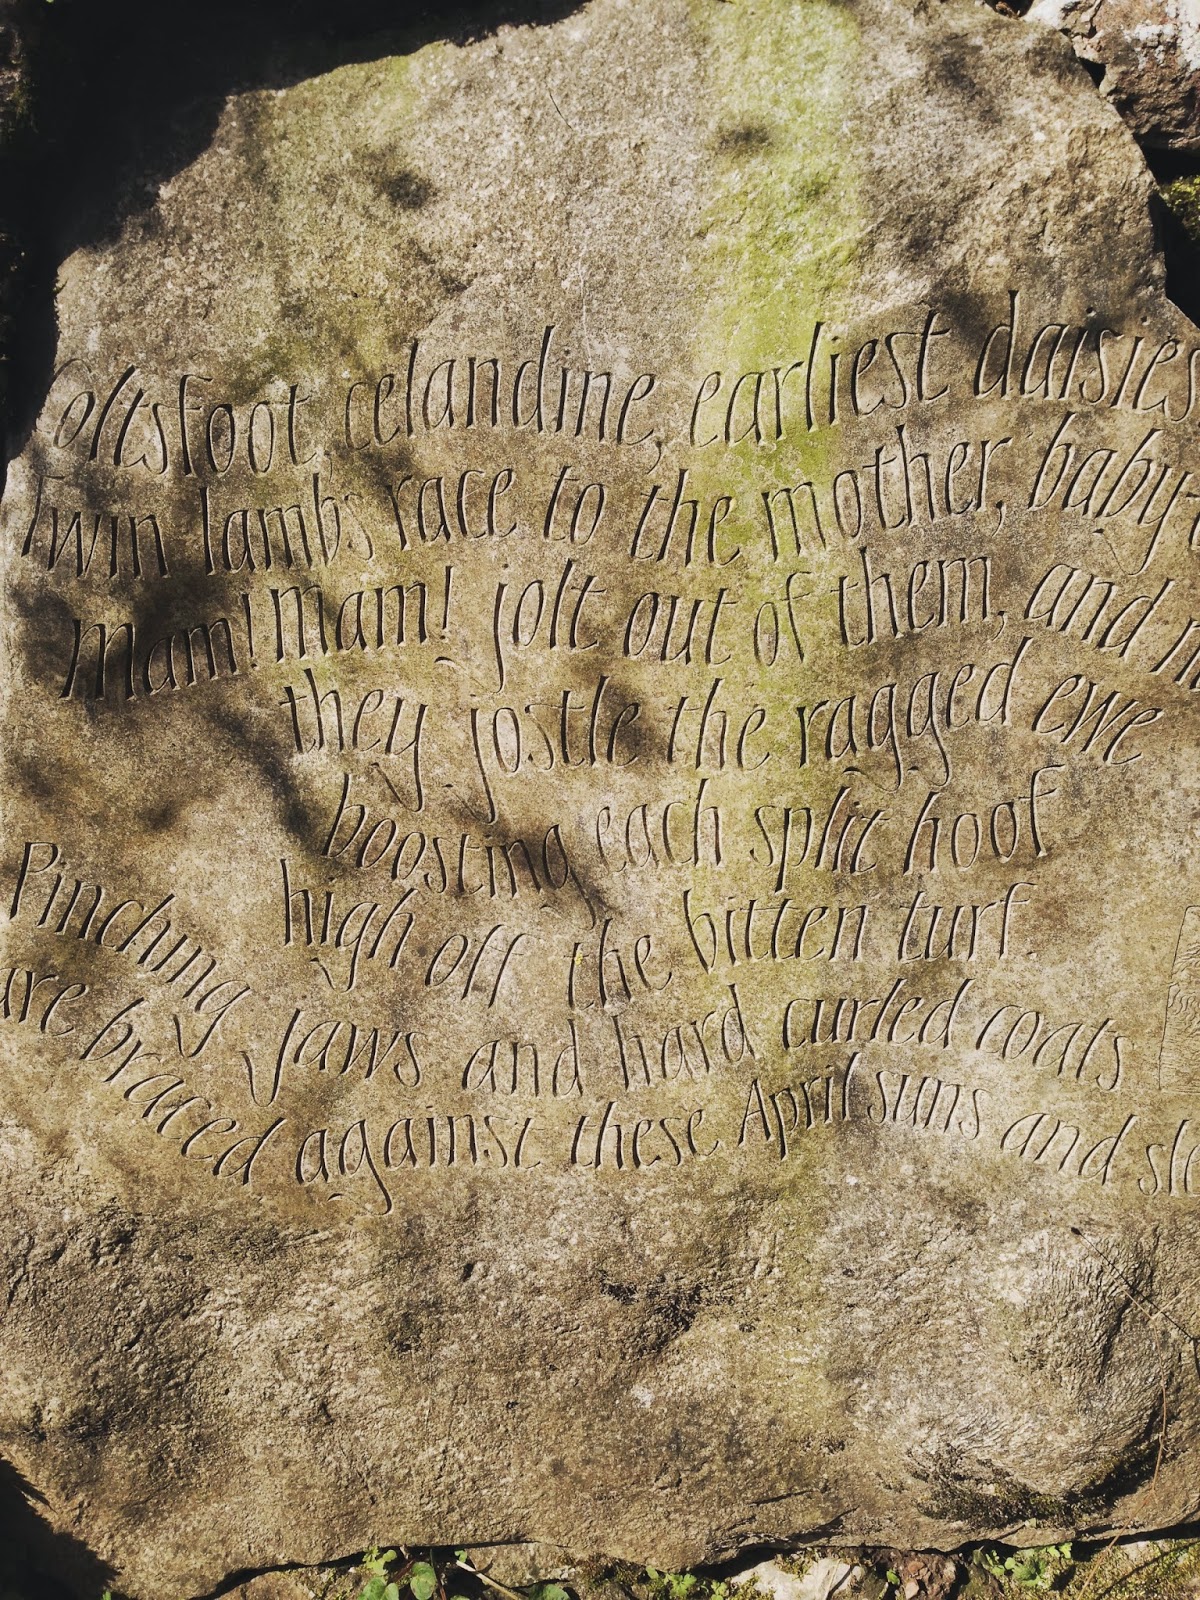 Coltsfoot, celandine, earliest daisies
Twin lambs race to the mother, baby
Mam! Mam! jolt out of them, and
they jostle the ragged ewe
boosting each split hoof
high off the bitten turf.
Pinching jaws and hard curled coats
are braced against these April suns and